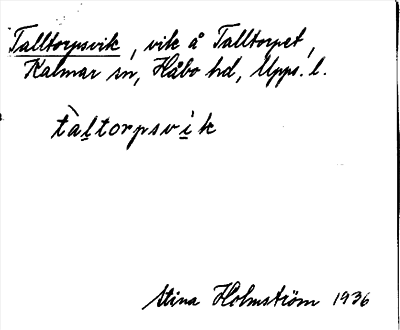 Talltorpsvik, vik å Talltorpet,
Kalmar sn, Håbo hd, Upps. l.
tàltorpsvik
Stina Holmström 1936